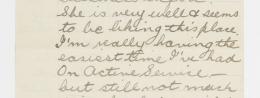 She is very well & seems
to be liking this place
I'm really having the
easiest time I've had
On Active Service —
but still not much